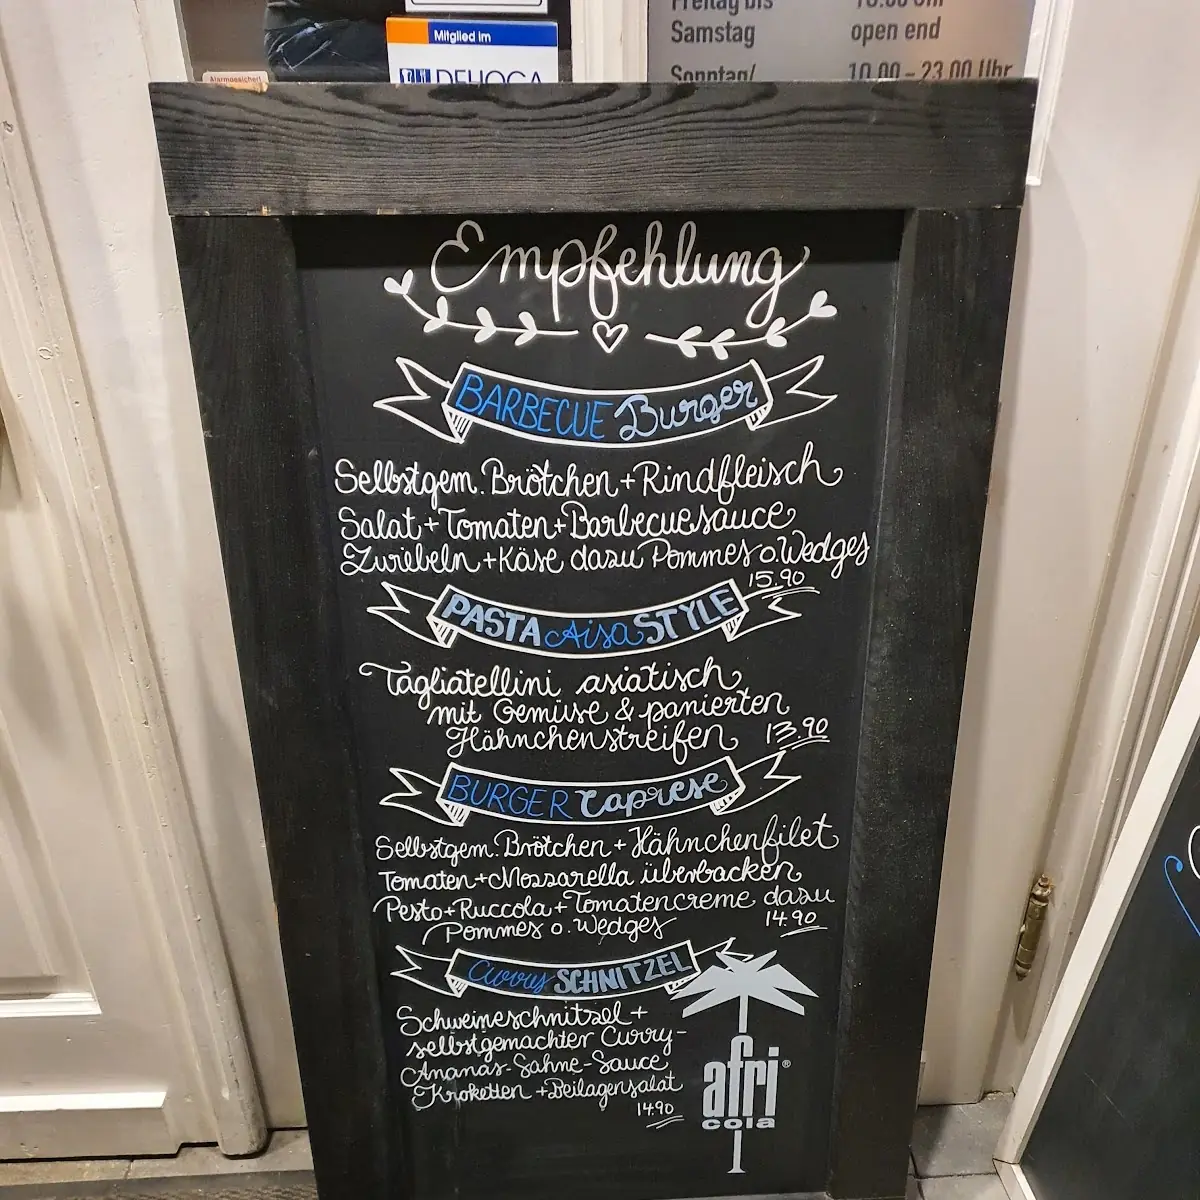 Freitag bis 10.00 Uhr
Samstag open end
Sonntag/ 10.00 - 23.00 Uhr
Mitglied im
DEHOGA
Alarmgesichert
Empfehlung
BARBECUE Burger
Selbstgem. Brötchen + Rindfleisch
Salat + Tomaten + Barbecuesauce
Zwiebeln + Käse dazu Pommes o. Wedges
15.90
PASTA Aisa STYLE
Tagliatellini asiatisch
mit Gemüse & panierten
Hähnchenstreifen 13.90
BURGER Caprese
Selbstgem. Brötchen + Hähnchenfilet
Tomaten + Mozzarella überbacken
Pesto + Ruccola + Tomatencreme dazu
Pommes o. Wedges 14.90
Curry SCHNITZEL
Schweineschnitzel +
selbstgemachter Curry-
Ananas-Sahne-Sauce
Kroketten + Beilagensalat
14.90
afri®
cola